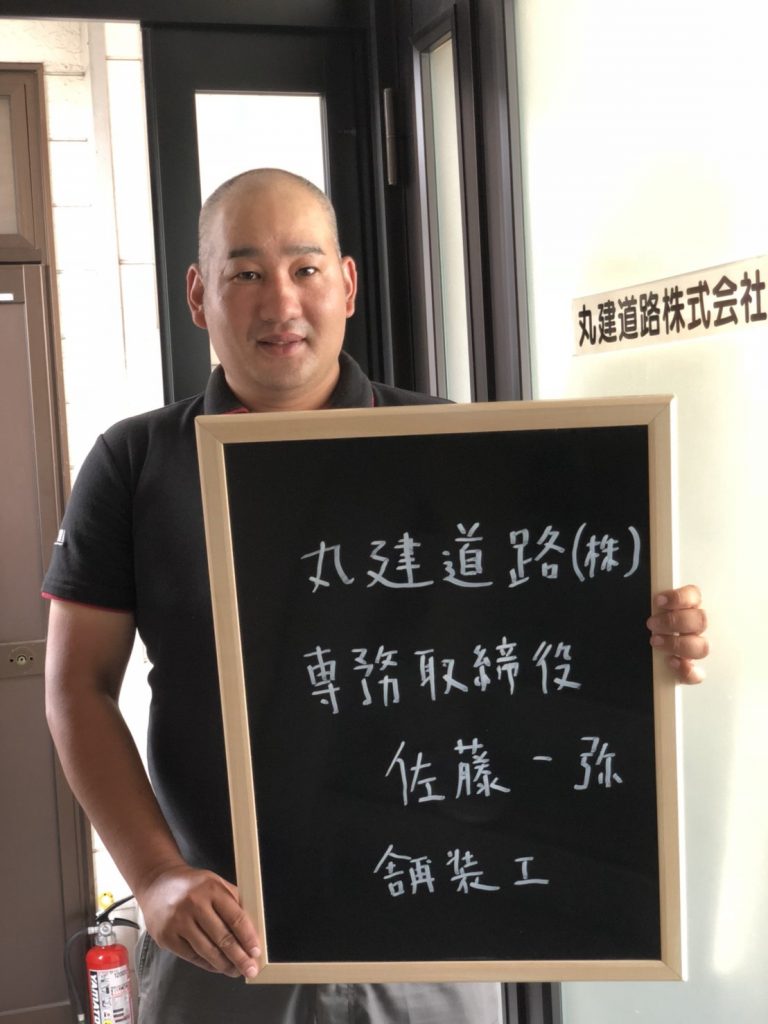 丸建道路株式会社
丸建道路(株)
専務取締役
佐藤一弥
舗装工
YAMATO